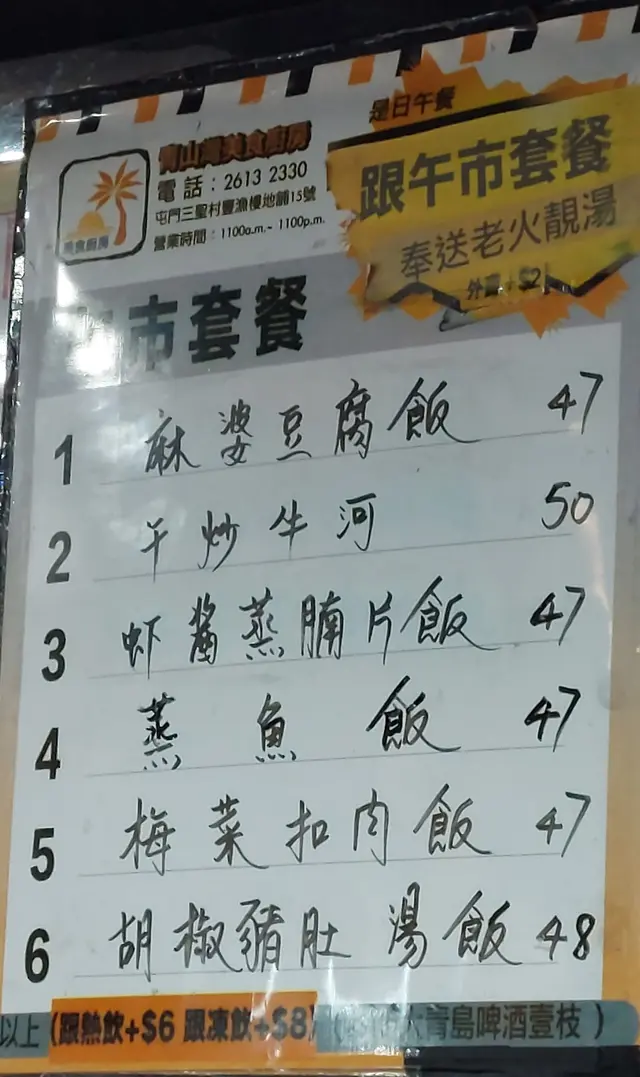 是日午餐
青山灣美食廚房
跟午市套餐
電話：2613 2330
奉送老火靚湯
屯門三聖村豐漁樓地舖15號
美食廚房
營業時間：1100a.m.- 1100p.m.
外賣+$2
市套餐
1 麻婆豆腐飯 47
2 干炒牛河 50
3 虾醬蒸腩片飯 47
4 蒸魚飯 47
5 梅菜扣肉飯 47
6 胡椒豬肚湯飯 48
以上（跟熱飲+$6 跟凍飲+$8）
青島啤酒壹枝）